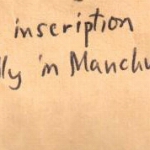 inscription
in Manchu